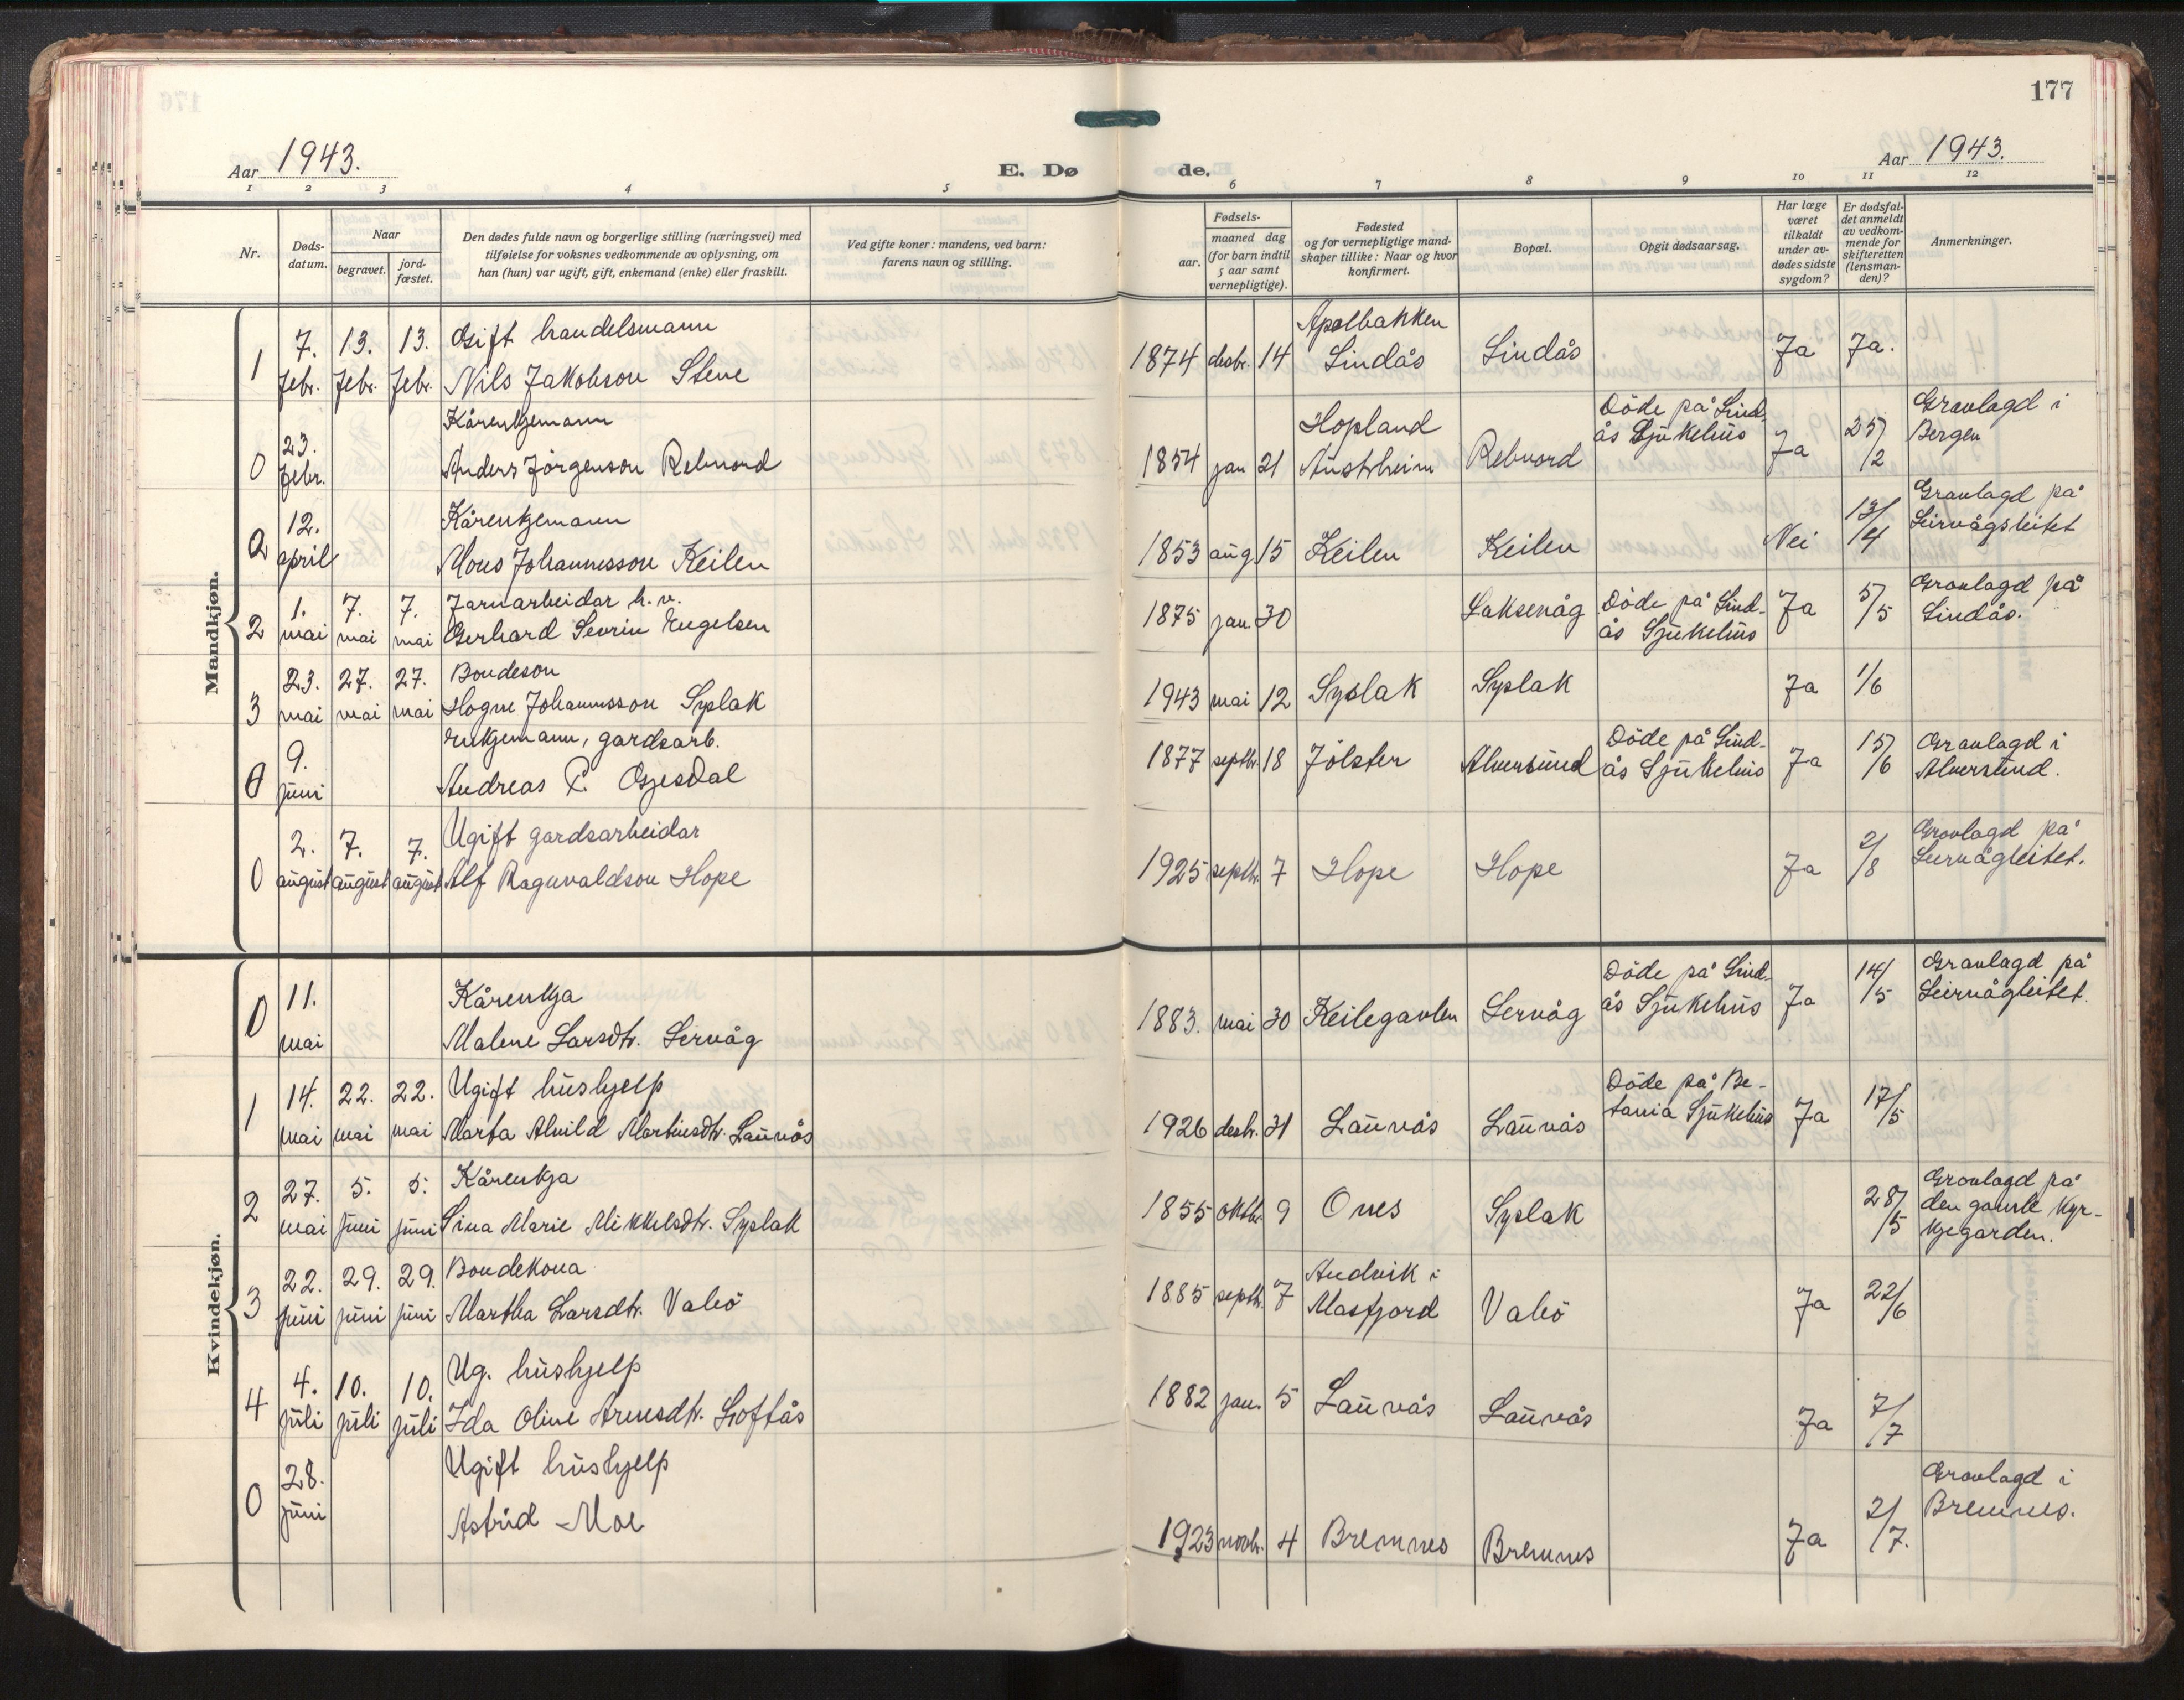 177
Aar 1943. E. Døde. Aar 1943.
1 2 3 4 5 6 7 8 9 10 11 12
Nr.
Døds-
datum.
Naar
begravet.
jord-
fæstet.
Den dødes fulde navn og borgerlige stilling (næringsvei) med
tilføielse for voksnes vedkommende av oplysning, om
han (hun) var ugift, gift, enkemand (enke) eller fraskilt.
Ved gifte koner: mandens, ved barn:
farens navn og stilling.
Fødsels-
aar.
maaned dag
(for barn indtil
5 aar samt
vernepligtige).
Fødested
og for vernepligtige mand-
skaper tillike: Naar og hvor
konfirmert.
Bopæl.
Opgit dødsaarsag.
Har læge
været
tilkaldt
under av-
dødes sidste
sygdom?
Er dødsfal-
det anmeldt
av vedkom-
mende for
skifteretten
(lensman-
den)?
Anmerkninger.
Mandkjøn.
7. 13. 13. Gift handelsmann Apalbakken
1 febr. febr. febr. Nils Jakobson Stene 1874 desbr. 14 Lindås Lindås Ja Ja.
23. Kårenkjemann Hopland Döde på Lind- Gravlagd i
0 febr. Anders Jörgenson Rebnord 1854 jan 21 Austrheim Rebnord ås Sjukehus Ja 25/2 Bergen
12. Kårenkjemann Gravlagd på
2 april Mons Johannesson Keilen 1853 aug 15 Keilen Keilen Nei 13/4 Leirvågsleitet
1. 7. 7. Jarnarbeidar h.v. Döde på Lind- Gravlagd på
2 mai mai mai Gerhard Sevrin Engelsen 1875 jan. 30 Laksevåg ås Sjukehus Ja 5/5 Lindås.
23. 27. 27. Bondeson
3 mai mai mai Hogne Johannesson Syslak 1943 mai 12 Syslak Syslak Ja 1/6
9. Enkjemann, gardsarb. Döde på Lind- Gravlagd i
0 juni Andreas P. Gjesdal 1877 septbr. 18 Jölster Alversund ås Sjukehus Ja 15/6 Alversund.
2. 7. 7. Ugift gardsarbeidar Gravlagd på
0 august august august Alf Ragnvaldson Hope 1925 septbr. 7 Hope Hope Ja 2/8 Leirvågleitet.
Kvindekjøn.
11. Kårenkja Döde på Lind- Gravlagd på
0 mai Malene Larsdtr. Lervåg 1883. mai 30 Keilegavlen Lervåg ås Sjukehus Ja 14/5 Leirvågleitet.
14. 22. 22. Ugift hushjelp Döde på Be-
1 mai mai mai Marta Alvild Martinsdtr. Lauvås 1926 desbr. 31 Lauvås Lauvås tania Sjukehus Ja 17/5
27. 5. 5. Kårenkja Gravlagd på
2 mai juni juni Sina Marie Mikkelsdtr. Syslak 1855 oktbr. 9 Ones Syslak 28/5 den gamle kyr-
kjegarden.
22. 29. 29. Bondekona Andvik i
3 juni juni juni Martha Larsdtr. Valö 1885 septbr. 7 Masfjord Valö Ja 22/6
4. 10. 10. Ug. hushjelp
4 juli juli juli Ida Oline Arnesdtr. Loftås 1882 jan. 5 Lauvås Lauvås Ja 7/7
28. Ugift hushjelp Gravlagd i
0 juni Astrid Moe 1923 novbr. 4 Bremnes Bremnes Ja 2/7. Bremnes.